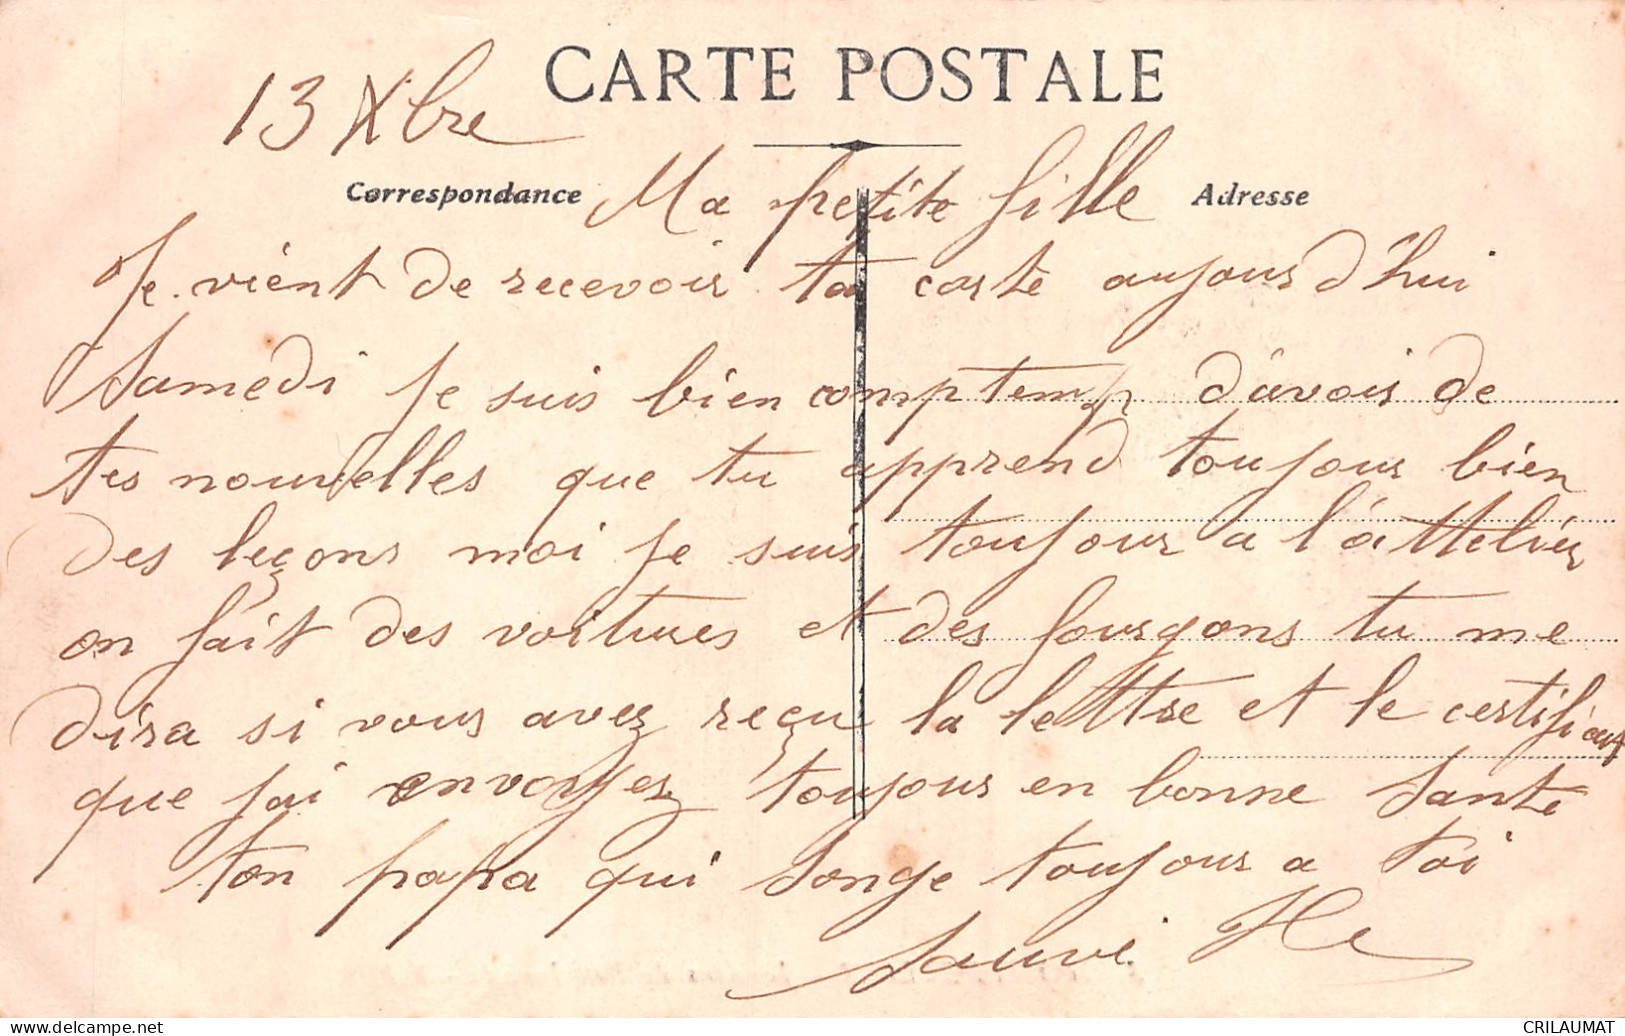 CARTE POSTALE
13 Xbre
Correspondance
Ma petite fille
Adresse
Je vient de recevoir ta carte aujourd'hui
Samedi Je suis bien comptemp d'avoir de
tes nouvelles que tu apprend toujour bien
des leçons moi Je suis toujour a l'attelier
on fait des voitures et des fourgons tu me
dira si vous avez reçu la lettre et le certificat
que jai envoyez toujour en bonne Santé
ton papa qui Songe toujour a toi
Sauvé
CRILAUMAT